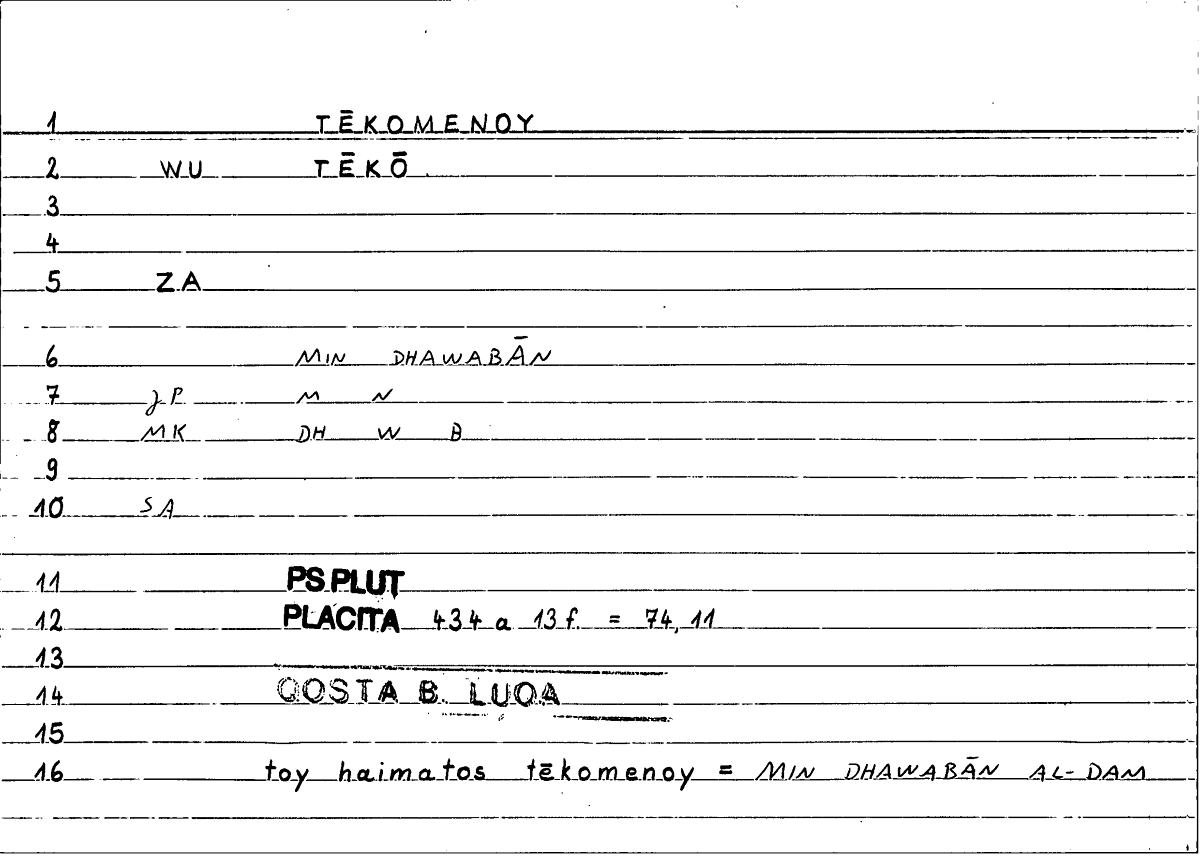 1 TĒKOMENOY
2 WU TĒKŌ
3
4
5 ZA
6 MIN DHAWABĀN
7 JP M N
8 MK DH W B
9
10 SA
11 PS.PLUT
12 PLACITA 434 a 13 f. = 74, 11
13
14 QOSTA B. LUQA
15
16 toy haimatos tēkomenoy = MIN DHAWABĀN AL-DAM